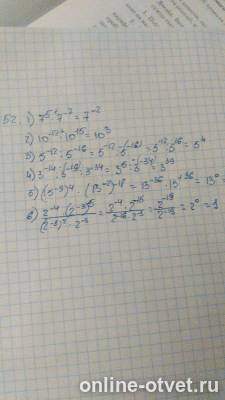 52. 1) 7⁵ · 7⁻⁷ = 7⁻²
2) 10⁻¹² · 10¹⁵ = 10³
3) 5⁻¹² : 5⁻¹⁶ = 5⁻¹²⁻⁽⁻¹⁶⁾ = 5⁻¹² · 5¹⁶ = 5⁴
4) 3⁻¹⁴ : 3⁻¹⁹ : 3⁻³⁴ = 3⁵ : ⁻⁽⁻³⁴⁾ = 3³⁹
5) (13⁻⁹)⁴ · (13⁻²)⁻¹⁸ = 13⁻³⁶ · 13⁺³⁶ = 13⁰ =
6) 2⁻⁴ · (2⁻³)⁵ / (2⁻⁸)² · 2⁻³ = 2⁻⁴ · 2⁻¹⁵ / 2⁻¹⁶ · 2⁻³ = 2⁻¹⁹ / 2⁻¹⁹ = 2⁰ = 1
online-otvet.ru